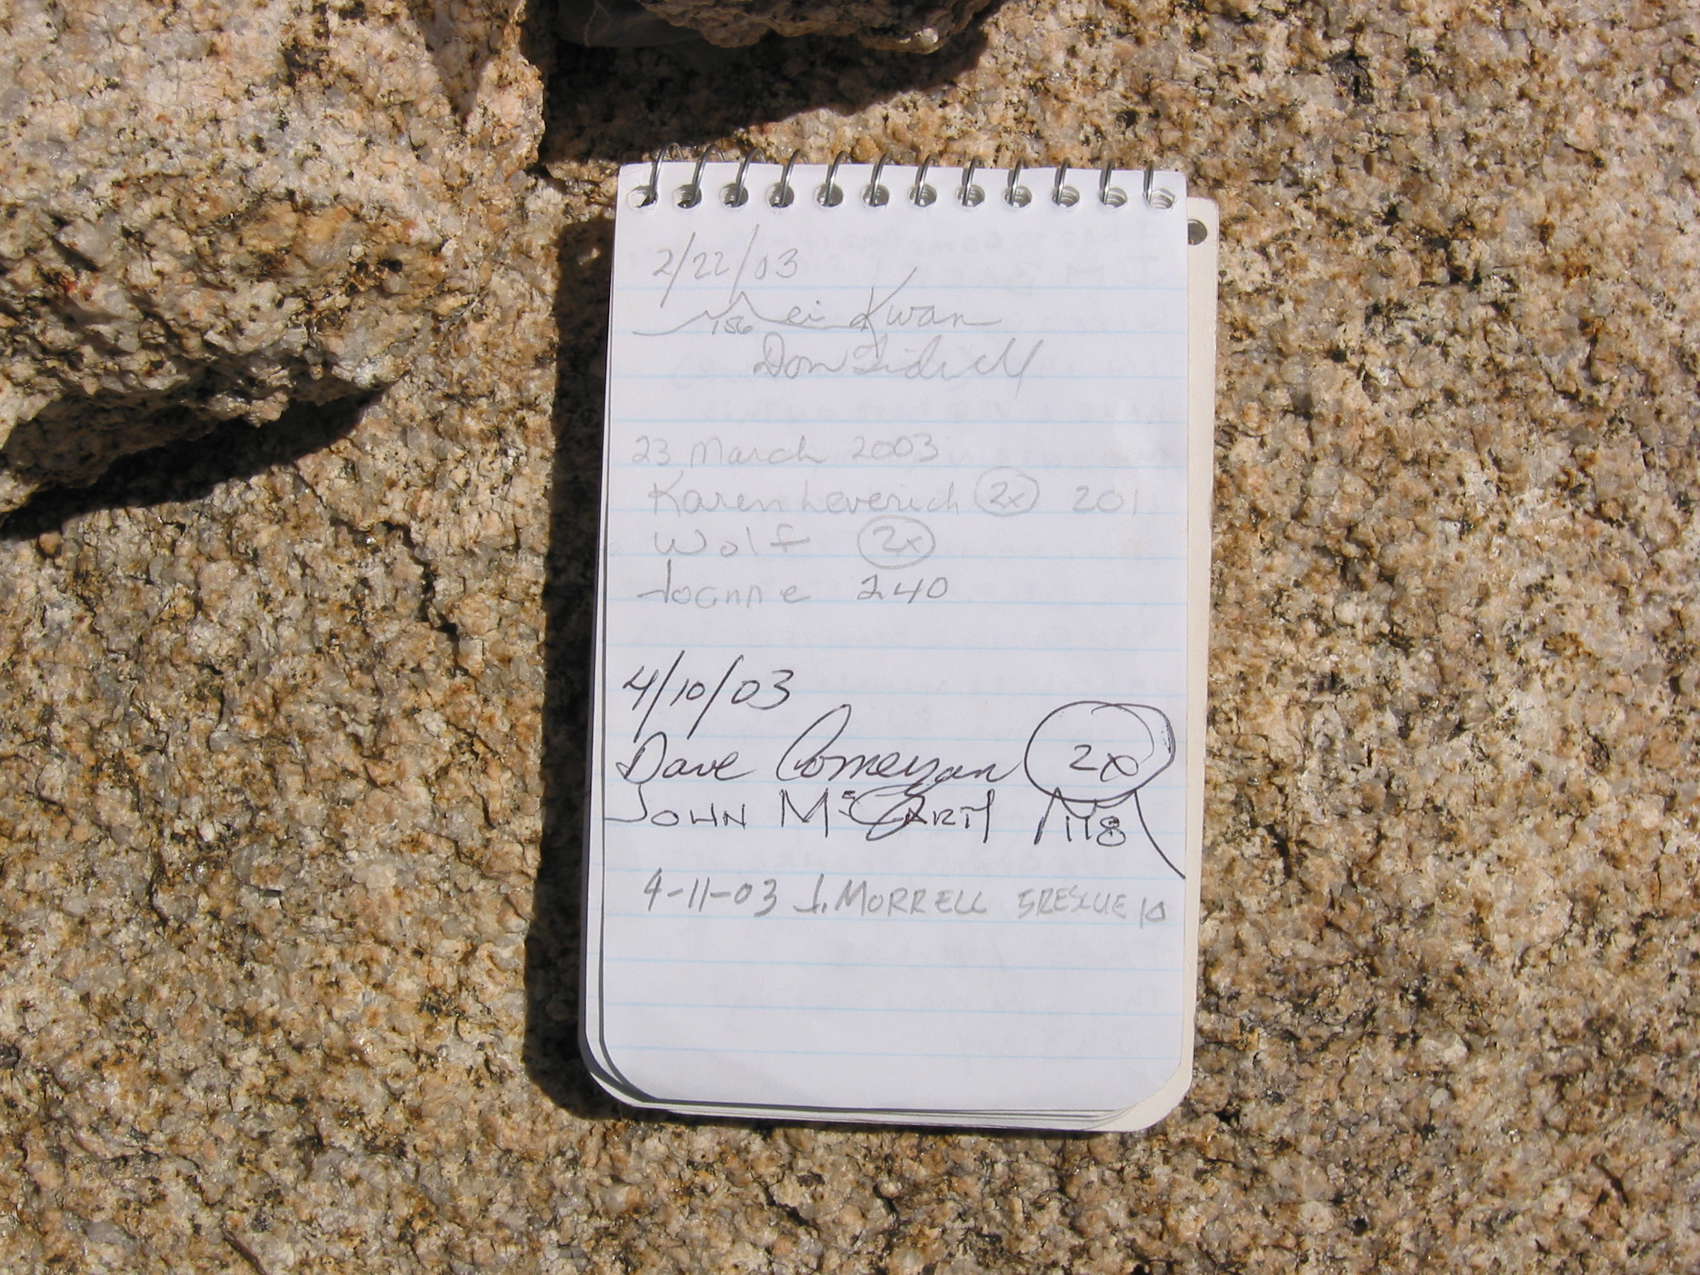 2/22/03
156 Mei Kwan
Don
23 March 2003
Karen Leverich 2x 201
Wolf 2x
Joanne 240
4/10/03
Dave Comeyan 2x
JOHN McCARTY 118
4-11-03 J. MORRELL